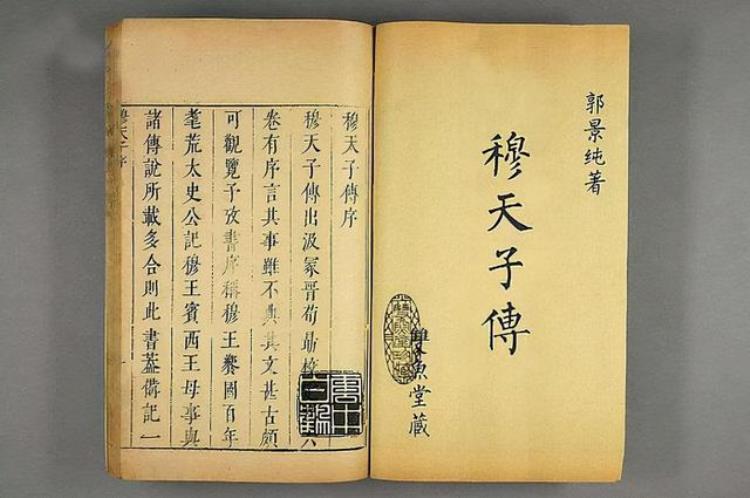 郭景純著
穆天子傳
雙魚堂藏
穆天子傳序
穆天子傳出汲冢晉荀勗校六
卷有序言其事雖不典其文甚古頗
可觀覽予攷書序稱穆王饗國百年
耄荒太史公記穆王賓西王母事與
諸傳說所載多合則此書蓋備記一
穆天子序
一